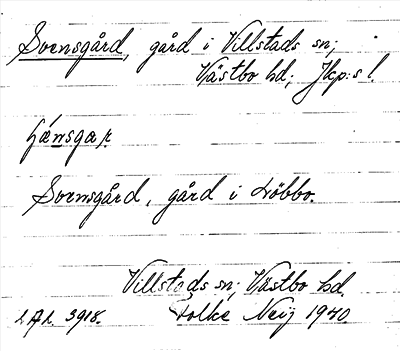 Svensgård, gård i Villstads sn;
Västbo hd; Jkp:s l.
Svensgård, gård i Nöbbo.
Villstads sn; Västbo hd.
L.A.L. 3918. Folke Neij 1940.